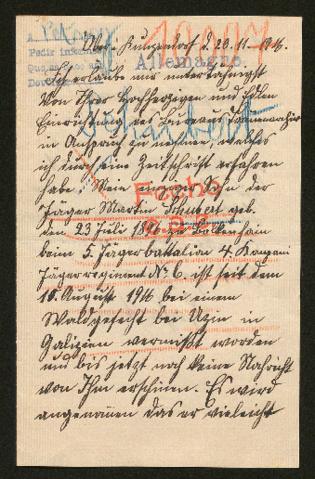 Ober-Kunzendorf d. 20.11.1916.
Allemagne
Ich erlaube mir untertähnigst
Von Ihrer Hochherzigen und edlen
Einrichtung des Bureaus
in Anspruch zu nehmen, welches
Schubert
ich durch eine Zeitschrift erfahren
habe. Mein einziger Sohn der
Jäger Martin Schubert geb.
den 23 Juli 1896 zu Bolkenhain
beim 5. Jägerbattalion 4. Kompani
Jägerregiment No 6. ist seit dem
10. August 1916 bei einem
Waldgefecht bei Uzin in
Galizien vermißt worden
und bis jetzt noch keine Nachricht
von Ihm erschinen. Es wird
angenomen das er vieleicht